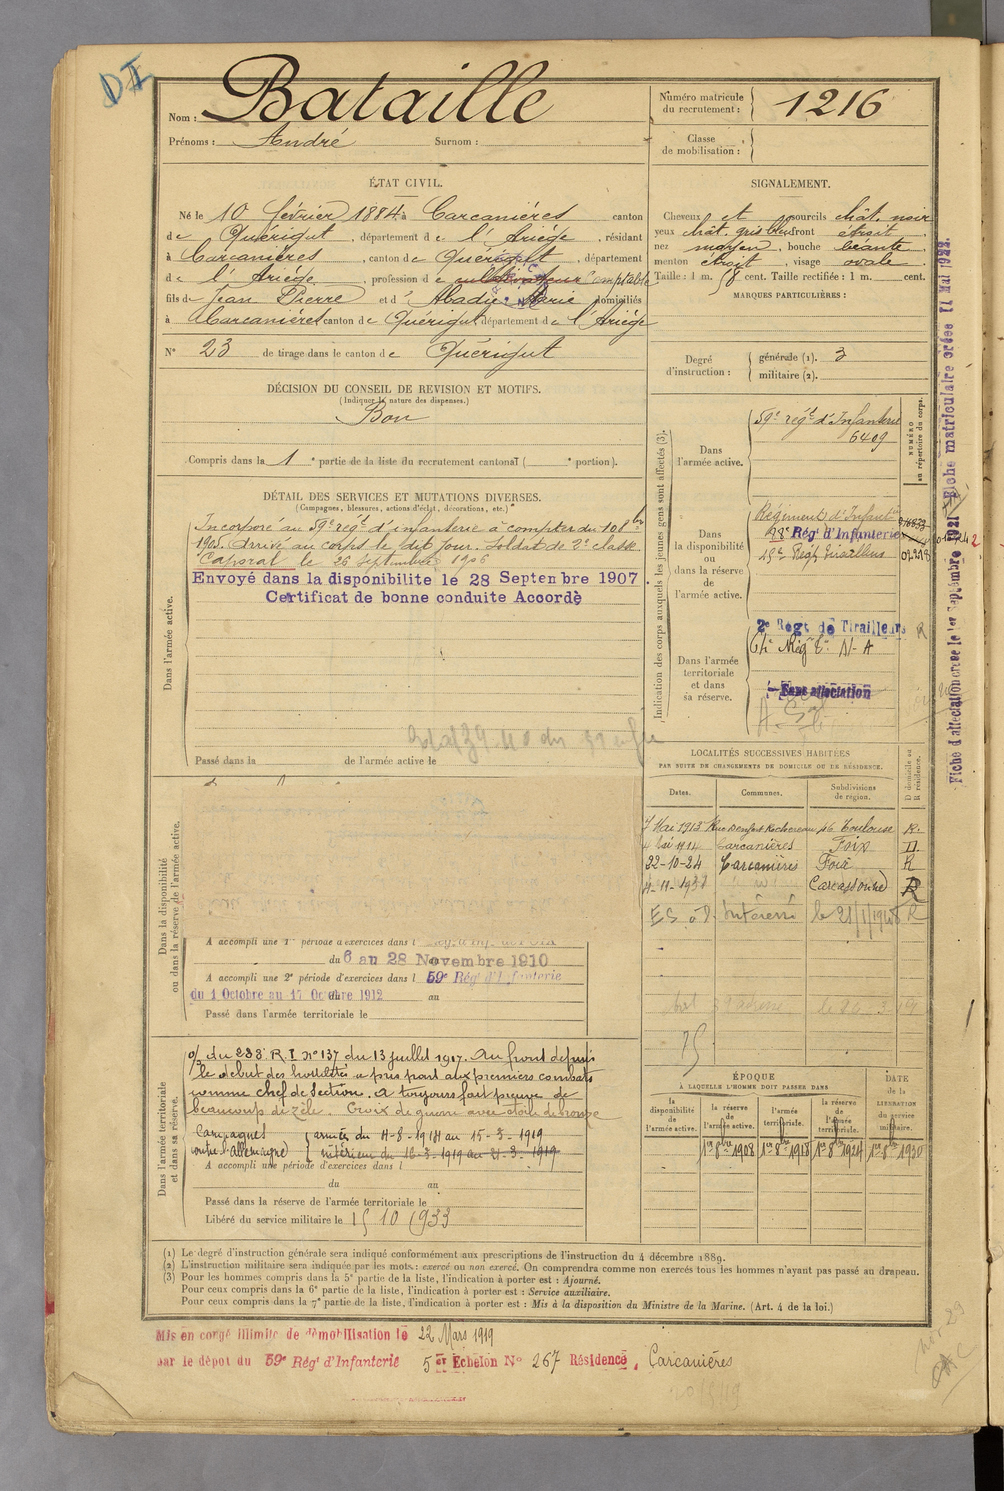 D I
Nom : Bataille
Prénoms : André Surnom :
Numéro matricule du recrutement : 1216
Classe de mobilisation :
ÉTAT CIVIL.
Né le 10 février 1884 à Carcanières canton
de Quérigut, département de l'Ariège, résidant
à Carcanières, canton de Quérigut, département
de l'Ariège, profession de cultivateur Comptable
fils de Jean Pierre et d' Abadie Marie domiciliés
à Carcanières canton de Quérigut département de l'Ariège
N° 23 de tirage dans le canton de Quérigut
SIGNALEMENT.
Cheveux et sourcils chât. noir
yeux chât. gris bleu front étroit
nez moyen, bouche béante
menton étroit, visage ovale.
Taille : 1 m. 58 cent. Taille rectifiée : 1 m. cent.
MARQUES PARTICULIÈRES :
Degré d'instruction : générale (1). 3
militaire (2).
DÉCISION DU CONSEIL DE REVISION ET MOTIFS.
(Indiquer la nature des dispenses.)
Bon
Compris dans la 1e partie de la liste du recrutement cantonal ( e portion).
DÉTAIL DES SERVICES ET MUTATIONS DIVERSES.
(Campagnes, blessures, actions d'éclat, décorations, etc.)
Dans l'armée active.
Incorporé au 59e régt d'infanterie à compter du 10 8bre
1905. Arrivé au corps le dit jour. Soldat de 2e classe.
Caporal le 26 Septembre 1906
Envoyé dans la disponibilite le 28 Septenbre 1907
Certificat de bonne conduite Accordè
Passé dans la de l'armée active le
Indication des corps auxquels les jeunes gens sont affectés (3).
NUMÉRO au répertoire du corps.
Dans l'armée active.
59e régt d'Infanterie
6409
Dans la disponibilité ou dans la réserve de l'armée active.
Régiment d'Infantie
Régt d'Infanterie
01218
Dans l'armée territoriale et dans sa réserve.
2e Régt de Tirailleurs
Sans affectation
Fiche d'affectation creée le 1er Septembre 1921 Fiche matriculaire créée 11 Mai 1922.
LOCALITÉS SUCCESSIVES HABITÉES
PAR SUITE DE CHANGEMENTS DE DOMICILE OU DE RÉSIDENCE.
Dates. Communes. Subdivisions de région. D domicile ou R résidence.
7 Mai 1913 Rue Denfert Rochereau 46 Toulouse R.
Mai 1914 Carcanières Foix D
22-10-24 Carcanières Foix R
Carcassonne R
Dans la disponibilité ou dans la réserve de l'armée active.
A accompli une 1e période d'exercices dans l
du 6 au 28 Novembre 1910
A accompli une 2e période d'exercices dans l 59e Régt d'Infanterie
du 1 Octobre au 17 Octobre 1912 au
Passé dans l'armée territoriale le
Dans l'armée territoriale et dans sa réserve.
o/ du 283e R.I n° 137 du 13 juillet 1917. Au front depuis
le début des hostilités a pris part aux premiers combats
comme chef de section. A toujours fait preuve de
beaucoup de zèle. Croix de guerre avec étoile de bronze
Campagnes armée du 4-8-1914 au 15-3-1919
contre l'allemagne intérieur du 16-3-1919 au 21-3-1919
A accompli une période d'exercices dans l
du au
Passé dans la réserve de l'armée territoriale le
Libéré du service militaire le 15 10 1933
ÉPOQUE
À LAQUELLE L'HOMME DOIT PASSER DANS
DATE de la LIBÉRATION du service militaire.
la disponibilité de l'armée active. la réserve de l'armée active. l'armée territoriale. la réserve de l'armée territoriale.
1er 8bre 1908 1er 8bre 1918 1er 8bre 1924 1er 8bre 1930
(1) Le degré d'instruction générale sera indiqué conformément aux prescriptions de l'instruction du 4 décembre 1889.
(2) L'instruction militaire sera indiquée par les mots : exercé ou non exercé. On comprendra comme non exercés tous les hommes n'ayant pas passé au drapeau.
(3) Pour les hommes compris dans la 5e partie de la liste, l'indication à porter est : Ajourné.
Pour ceux compris dans la 6e partie de la liste, l'indication à porter est : Service auxiliaire.
Pour ceux compris dans la 7e partie de la liste, l'indication à porter est : Mis à la disposition du Ministre de la Marine. (Art. 4 de la loi.)
Mis en congé illimité de démobilisation le 22 Mars 1919
par le dépot du 59e Régt d'Infanterie 5er Echelon N° 267 Résidence, Carcanières